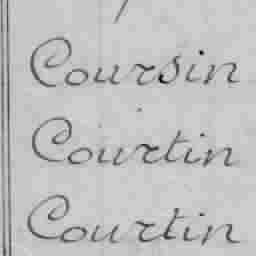 Coursin
Courtin
Courtin